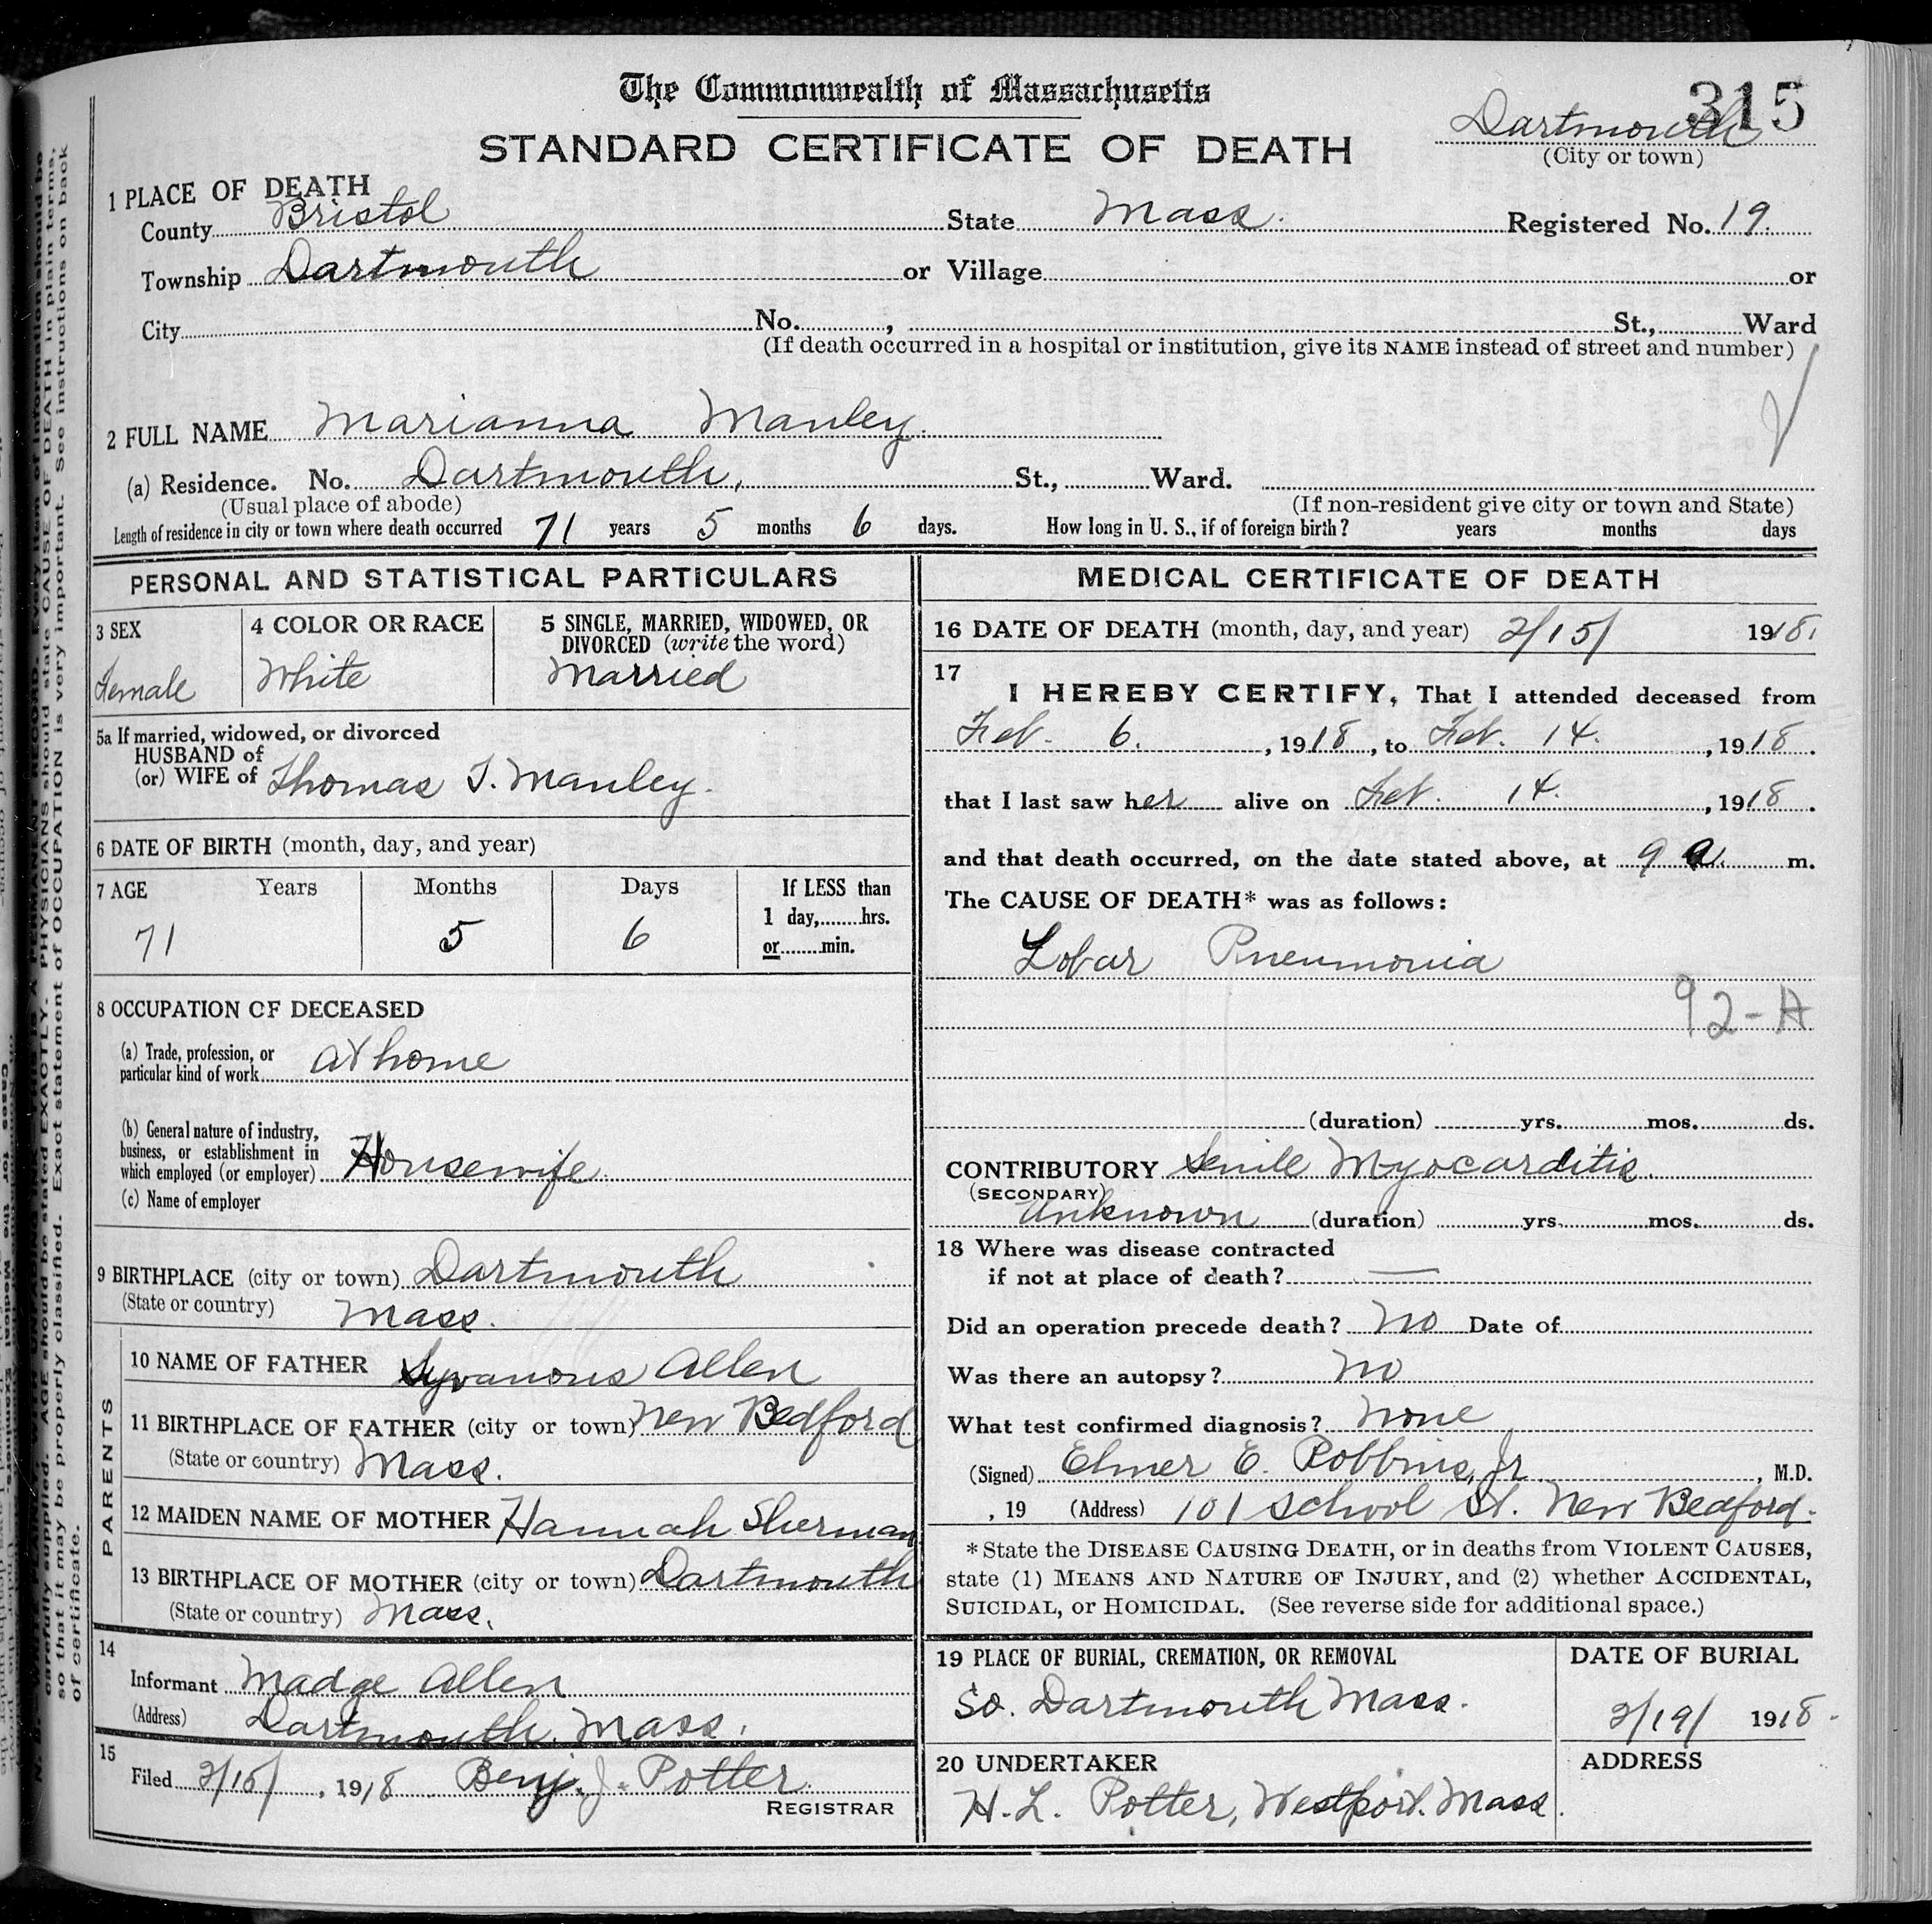 The Commonwealth of Massachusetts
315
STANDARD CERTIFICATE OF DEATH
Dartmouth
(City or town)
1 PLACE OF DEATH
County Bristol State Mass. Registered No. 19.
Township Dartmouth or Village or
City No. , St., Ward
(If death occurred in a hospital or institution, give its NAME instead of street and number)
2 FULL NAME Marianna Manley.
(a) Residence. No. Dartmouth, St., Ward.
(Usual place of abode) (If non-resident give city or town and State)
Length of residence in city or town where death occurred 71 years 5 months 6 days. How long in U. S., if of foreign birth? years months days
PERSONAL AND STATISTICAL PARTICULARS
3 SEX
Female
4 COLOR OR RACE
White
5 SINGLE, MARRIED, WIDOWED, OR
DIVORCED (write the word)
Married
5a If married, widowed, or divorced
HUSBAND of
(or) WIFE of Thomas T. Manley.
6 DATE OF BIRTH (month, day, and year)
7 AGE Years Months Days If LESS than
1 day, hrs.
or min.
71 5 6
8 OCCUPATION OF DECEASED
(a) Trade, profession, or
particular kind of work At home
(b) General nature of industry,
business, or establishment in
which employed (or employer) Housewife.
(c) Name of employer
9 BIRTHPLACE (city or town) Dartmouth
(State or country) Mass.
PARENTS
10 NAME OF FATHER Syvanous Allen
11 BIRTHPLACE OF FATHER (city or town) New Bedford
(State or country) Mass.
12 MAIDEN NAME OF MOTHER Hannah Sherman
13 BIRTHPLACE OF MOTHER (city or town) Dartmouth
(State or country) Mass.
14
Informant Madge Allen
(Address) Dartmouth. Mass.
15
Filed 2/15/, 1918 Benj. J. Potter.
REGISTRAR
MEDICAL CERTIFICATE OF DEATH
16 DATE OF DEATH (month, day, and year) 2/15/ 1918.
17
I HEREBY CERTIFY, That I attended deceased from
Feb. 6. , 1918, to Feb. 14. , 1918.
that I last saw her alive on Feb. 14. , 1918.
and that death occurred, on the date stated above, at 9 a. m.
The CAUSE OF DEATH* was as follows:
Lobar Pneumonia
92-A
(duration) yrs. mos. ds.
CONTRIBUTORY Senile Myocarditis.
(SECONDARY)
Unknown (duration) yrs. mos. ds.
18 Where was disease contracted
if not at place of death? —
Did an operation precede death? No Date of
Was there an autopsy? No
What test confirmed diagnosis? None
(Signed) Elmer E. Robbins, Jr , M.D.
, 19 (Address) 101 School St. New Bedford.
* State the DISEASE CAUSING DEATH, or in deaths from VIOLENT CAUSES,
state (1) MEANS AND NATURE OF INJURY, and (2) whether ACCIDENTAL,
SUICIDAL, or HOMICIDAL. (See reverse side for additional space.)
19 PLACE OF BURIAL, CREMATION, OR REMOVAL
So. Dartmouth Mass.
DATE OF BURIAL
2/19/ 1918.
20 UNDERTAKER
H. L. Potter, Westport. Mass.
ADDRESS
carefully supplied. AGE should be stated EXACTLY. PHYSICIANS should state CAUSE OF DEATH in plain terms,
so that it may be properly classified. Exact statement of OCCUPATION is very important. See instructions on back
of certificate.